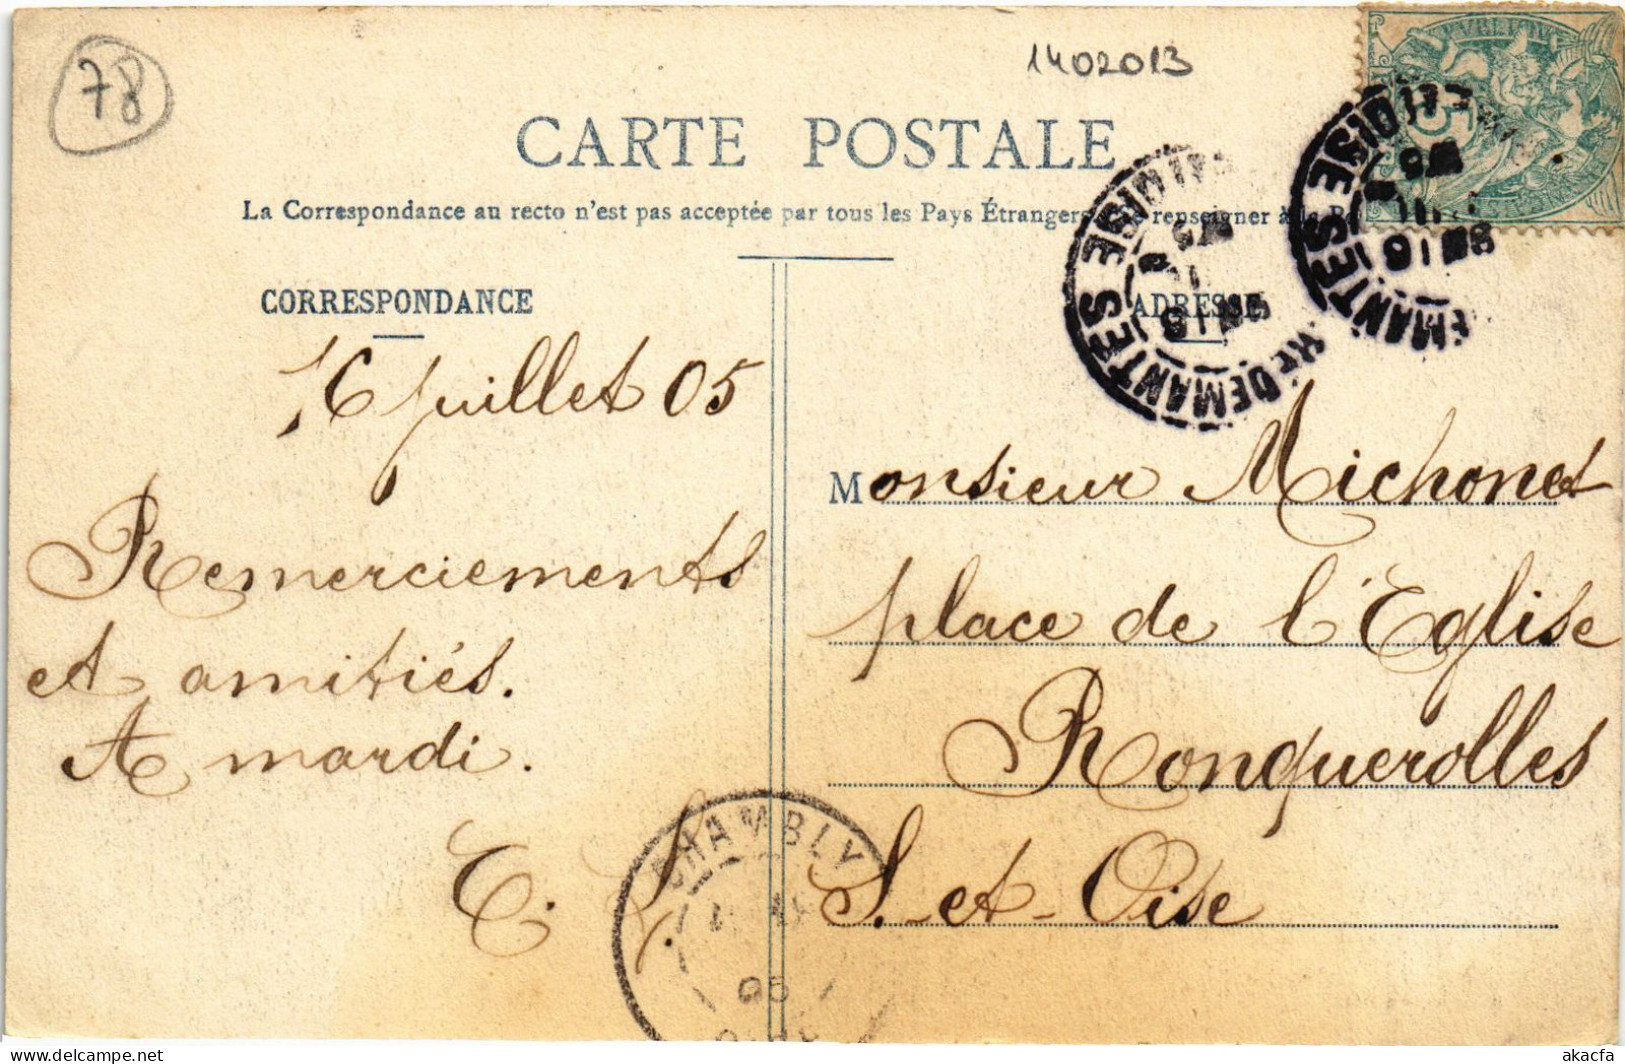 78
1402013
CARTE POSTALE
La Correspondance au recto n'est pas acceptée par tous les Pays Étrangers renseigner à la
CORRESPONDANCE
ADRESSE
16 juillet 05
Remerciements
et amitiés.
A mardi.
E. S.
Monsieur Michonet
place de l'Eglise
Ronquerolles
S.-et-Oise
CHAMBLY
05
MANTES
OISE
DE MANTES
OISE
5
akacfa
delcampe.net